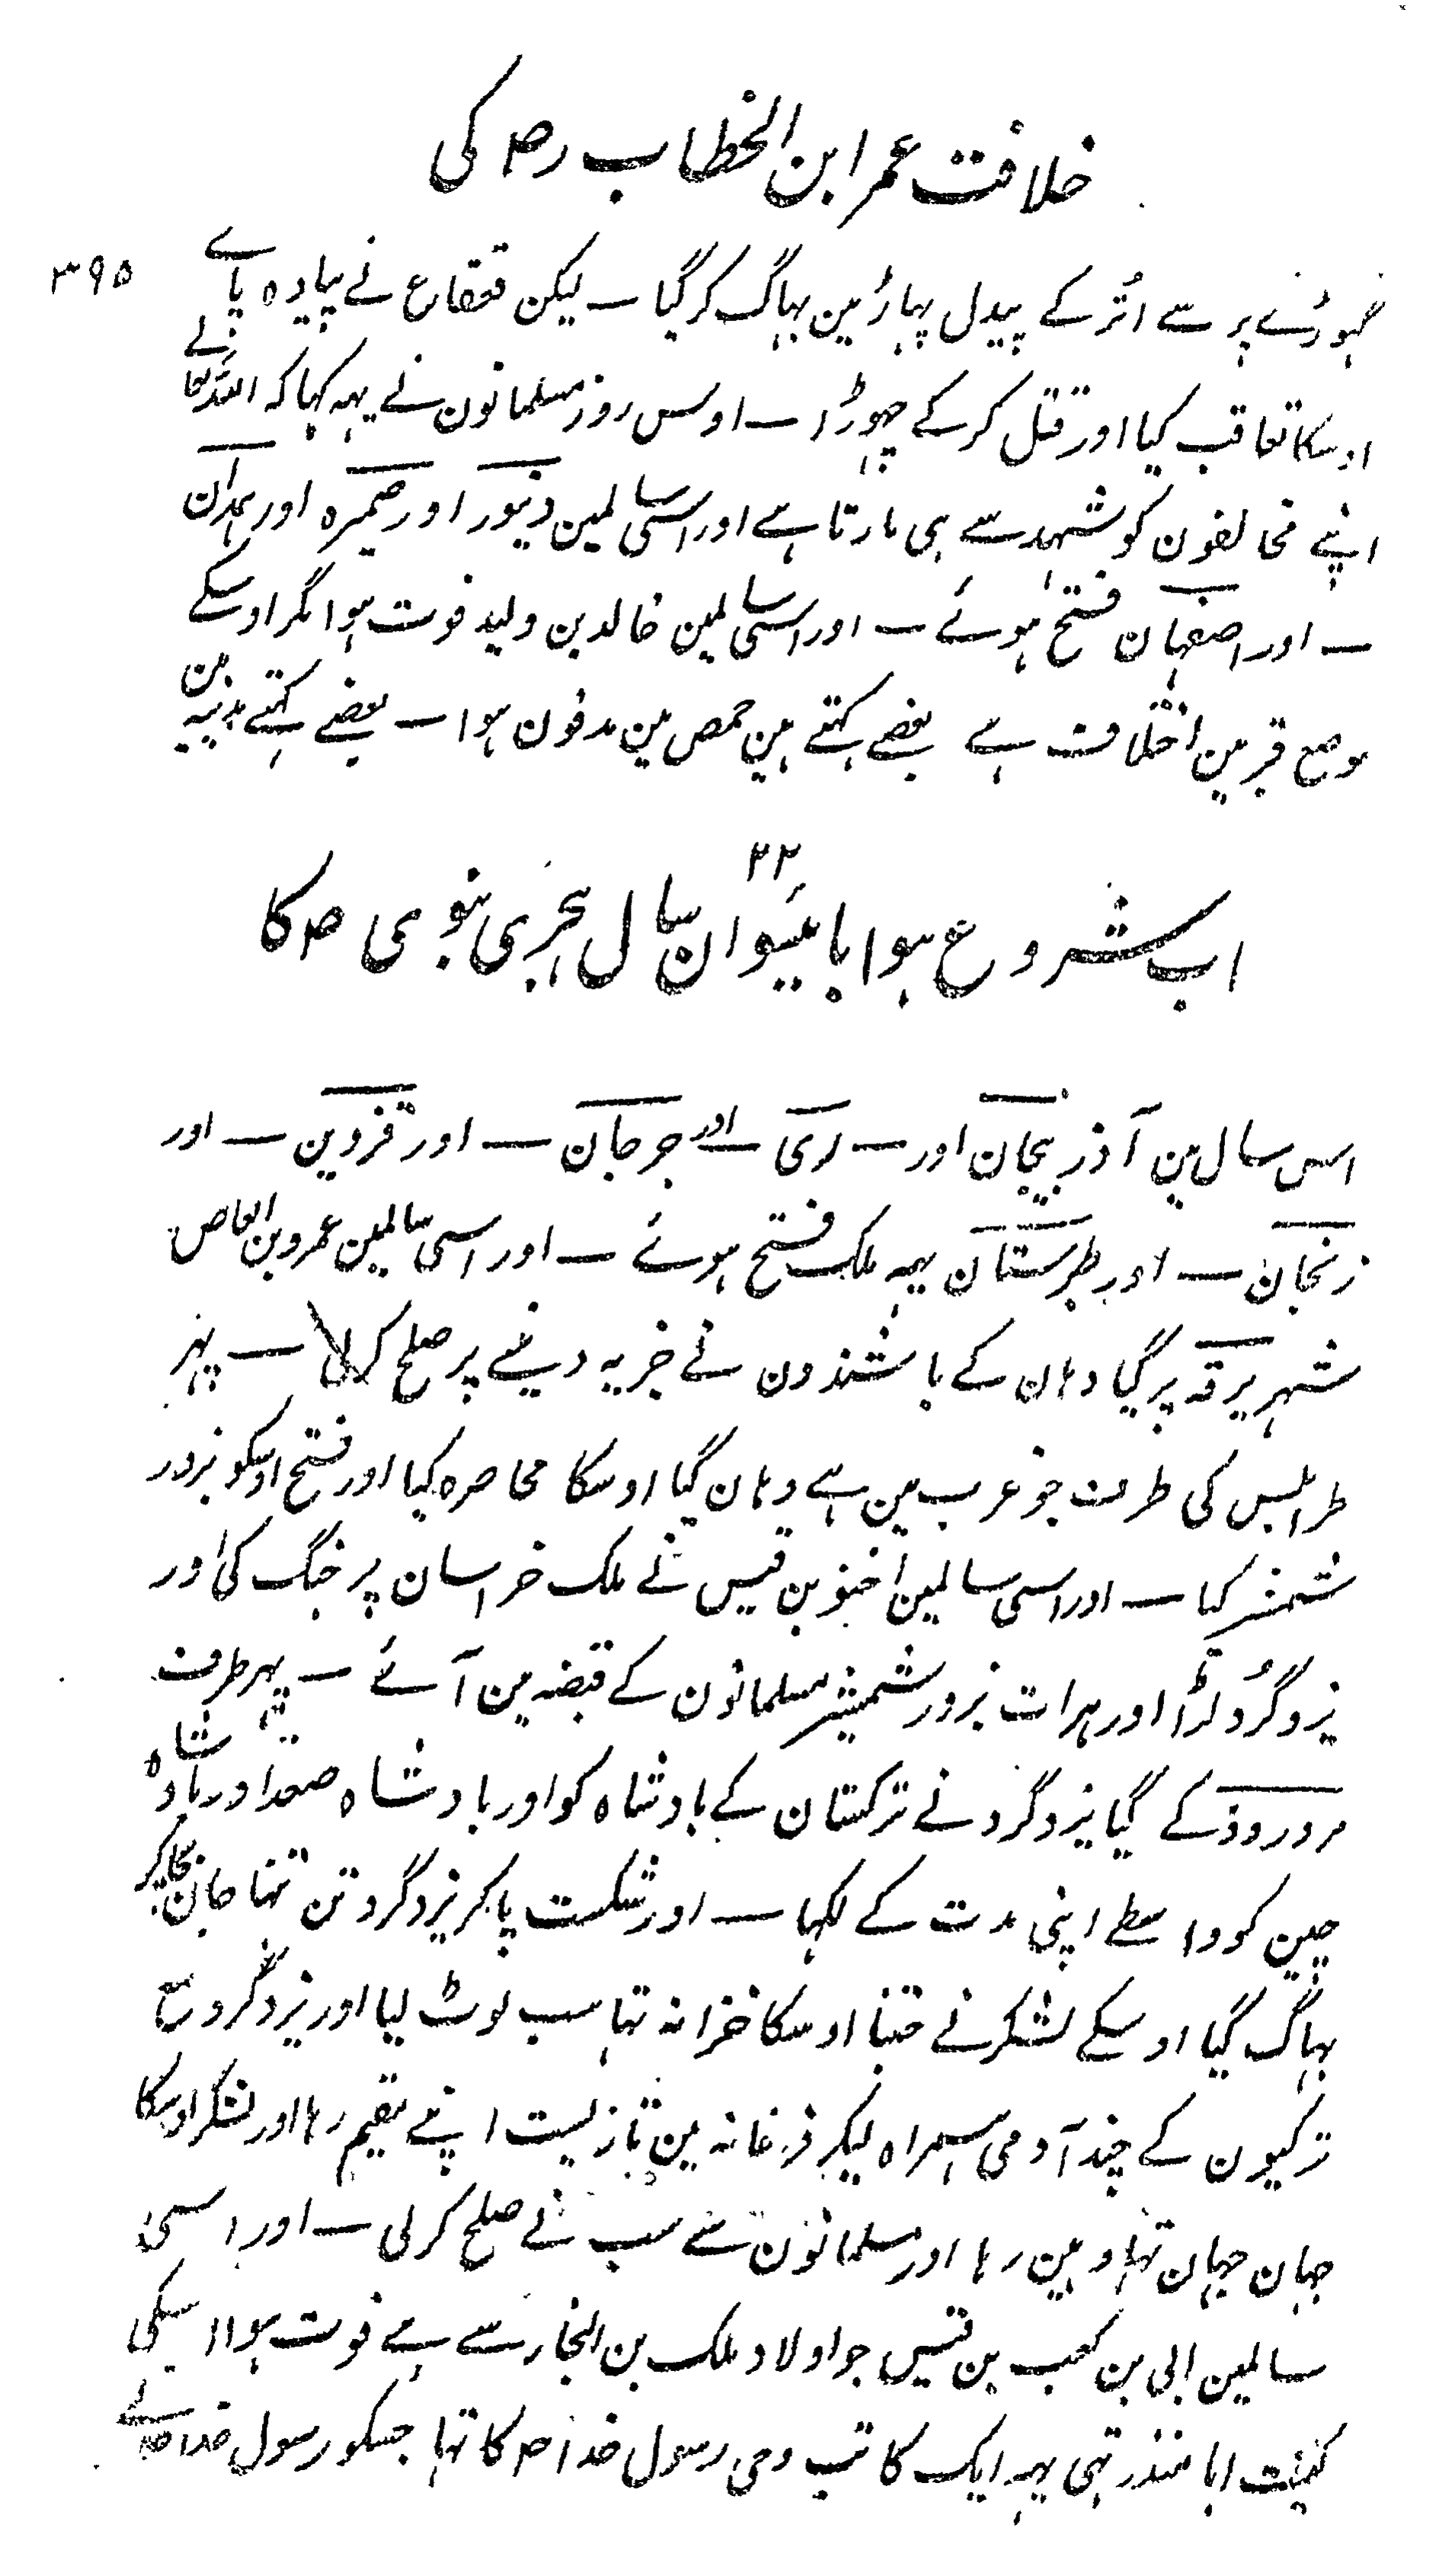 خلافت عمر ابن الخطاب رص کی
۳۹۵
گہوڑنے پر سے اُتر کے پیدل پہاڑ مین بہاگ کر گیا — لیکن قعقاع نے پیادہ پاے
اوسکا تعاقب کیا اور قتل کر کے چہوڑا — اوس روز مسلمانون نے یہہ کہا کہ اللہ تعالے
اپنے مخالفون کو شہد سے ہی مارتا ہے اور اسی سالمین دینور اور صیمرہ اور ہمدان
— اور اصفہان فتح ہوئے — اور اسی سالمین خالد بن ولید فوت ہوا مگر اوسکے
موضع قبر مین اختلاف ہے بعضے کہتے ہین حمص مین مدفون ہوا — بعضے کہتے مدینہ مین
۲۲
اب شروع ہوا بائیسوان سال ہجری نبوی ص کا
اس سال مین آذربیجان اور — ری — اور جرجان — اور قزوین — اور
زنجان — اور طبرستان یہہ ملک فتح ہوئے — اور اسی سالمین عمرو بن العاص
شہر برقہ پر گیا وہان کے باشندون نے جزیہ دینے پر صلح کرلی — پہر
طرابلس کی طرف جو غرب مین ہے وہان گیا اوسکا محاصرہ کیا اور فتح اوسکو بزور
شمشیر کیا — اور اسی سالمین احنف بن قیس نے ملک خراسان پر جنگ کی اور
یزدگرد لڑا اور ہرات بزور شمشیر مسلمانون کے قبضہ مین آئے — پہر طرف
مروروذ کے گیا یزدگرد نے ترکستان کے بادشاہ کو اور بادشاہ صغد اور بادشاہ
چین کو واسطے اپنی مدت کے لکہا — اور شکست پا کر یزدگرد تن تنہا جان بچا کر
بہاگ گیا اوسکے لشکر نے جتنا اوسکا خزانہ تہا سب لوٹ لیا اور یزدگرد مع
ترکیون کے چند آدمی ہمراہ لیکر فرغانہ مین تا زیست اپنے مقیم رہا اور لشکر اوسکا
جہان جہان تہا وہین رہا اور مسلمانون سے سب نے صلح کر لی — اور اسی
سالمین ابی بن کعب بن قیس جو اولاد ملک بن النجار سے ہے فوت ہوا اسکی
کنیت ابا منذر تہی یہہ ایک کاتب وحی رسول خدا ص کا تہا جسکو رسول خدا ص نے